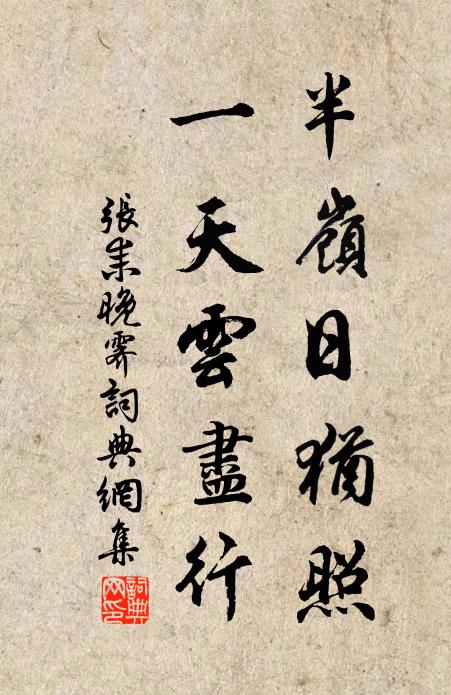 半嶺日猶照
一天雲盡行
張耒晚霽詞典網集
詞典網印